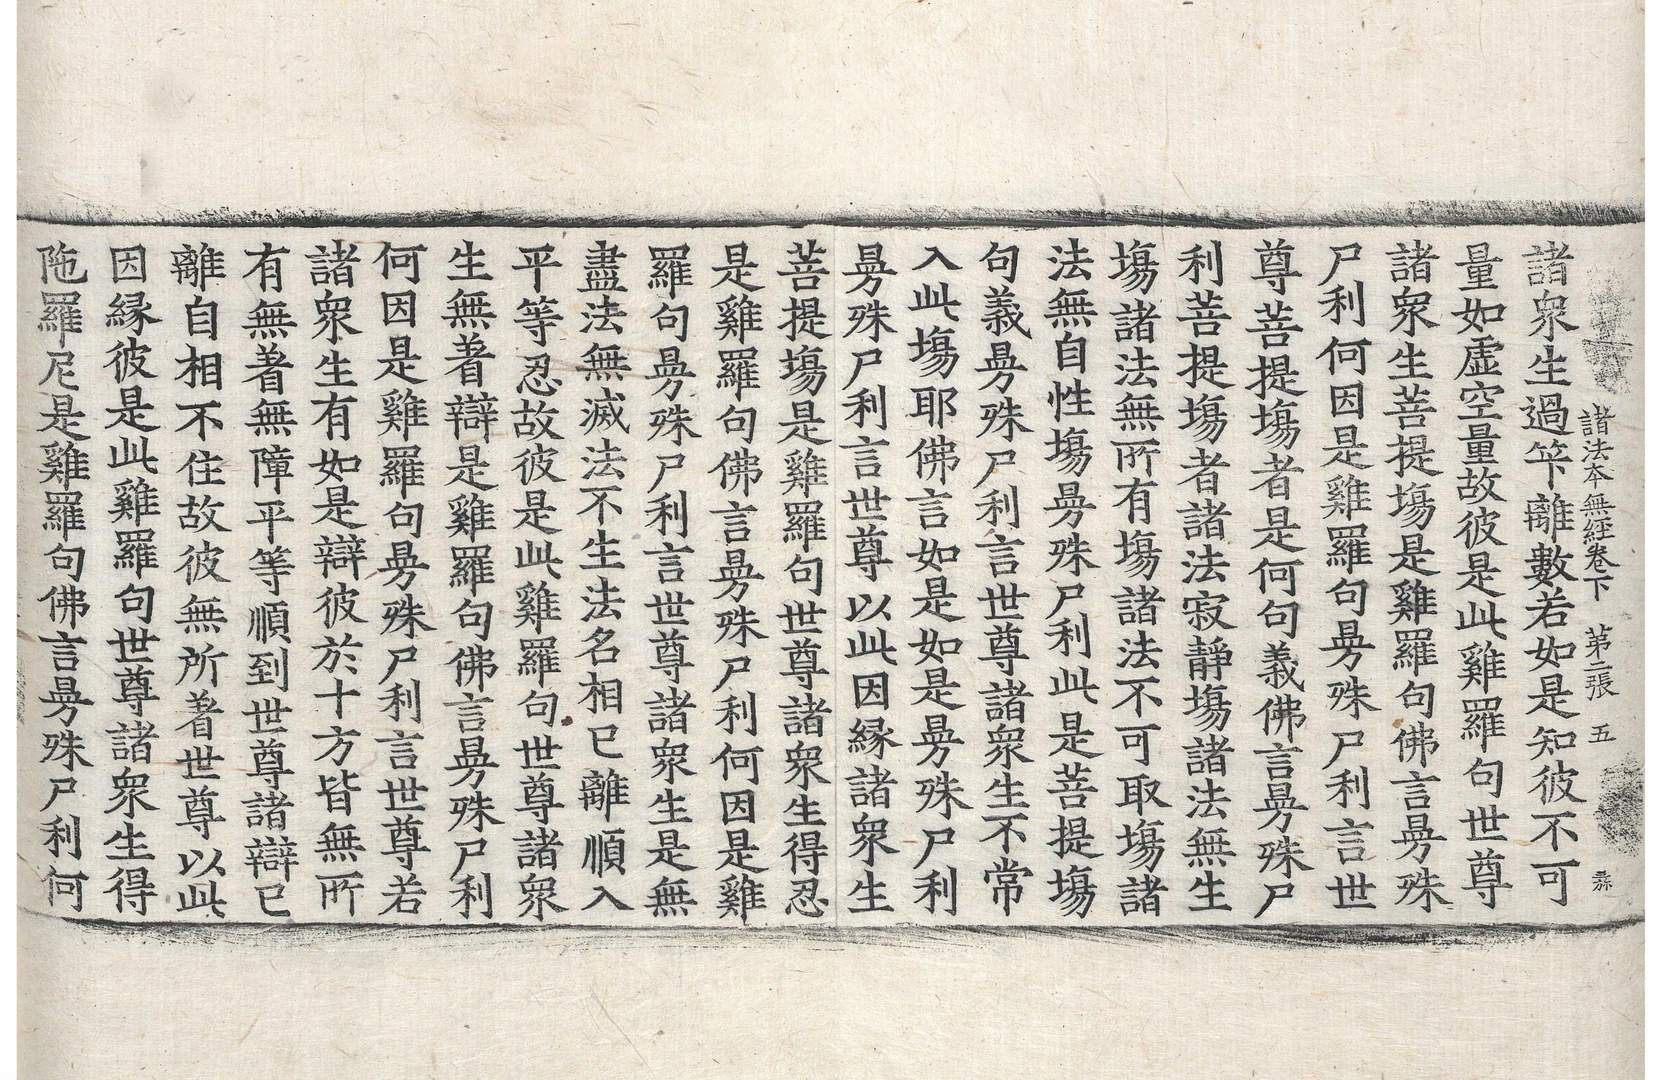 諸法本無經卷下 第二張 五 彝
諸衆生過筭離數若如是知彼不可
量如虛空量故彼是此雞羅句世尊
諸衆生菩提場是雞羅句佛言曼殊
尸利何因是雞羅句曼殊尸利言世
尊菩提場者是何句義佛言曼殊尸
利菩提場者諸法寂靜場諸法無生
場諸法無所有場諸法不可取場諸
法無自性場曼殊尸利此是菩提場
句義曼殊尸利言世尊諸衆生不常
入此場耶佛言如是如是曼殊尸利
曼殊尸利言世尊以此因緣諸衆生
菩提場是雞羅句世尊諸衆生得忍
是雞羅句佛言曼殊尸利何因是雞
羅句曼殊尸利言世尊諸衆生是無
盡法無滅法不生法名相已離順入
平等忍故彼是此雞羅句世尊諸衆
生無著辯是雞羅句佛言曼殊尸利
何因是雞羅句曼殊尸利言世尊若
諸衆生有如是辯彼於十方皆無所
有無著無障平等順到世尊諸辯已
離自相不住故彼無所著世尊以此
因緣彼是此雞羅句世尊諸衆生得
陁羅尼是雞羅句佛言曼殊尸利何